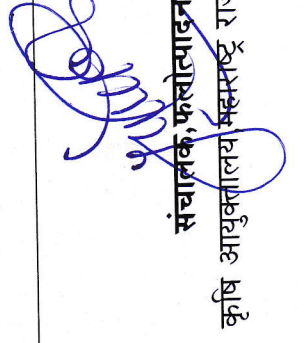 संचालक, फलोत्पादन
कृषि आयुक्तालय, महाराष्ट्र